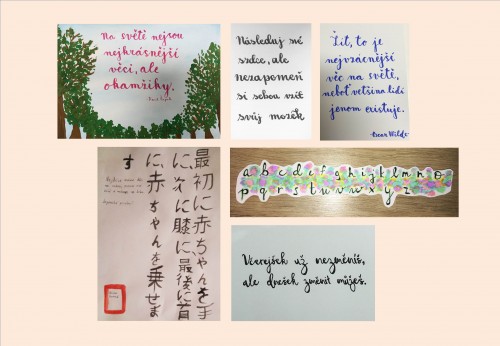 Na světě nejsou
nejkrásnější
věci, ale
okamžiky.
Následuj své
srdce, ale
nezapomeň
si sebou vzít
svůj mozek
Žít, to je
nejvzácnější
věc na světě,
neboť většina lidí
jenom existuje.
-Oscar Wilde
最初に赤ちゃんを手
に、次に膝に、最後に首
に、赤ちゃんを乗せま
す
a b c d e f g h i j k l m n o
p q r s t u v w x y z
Včerejšek už nezměníš,
ale dnešek změnit můžeš.